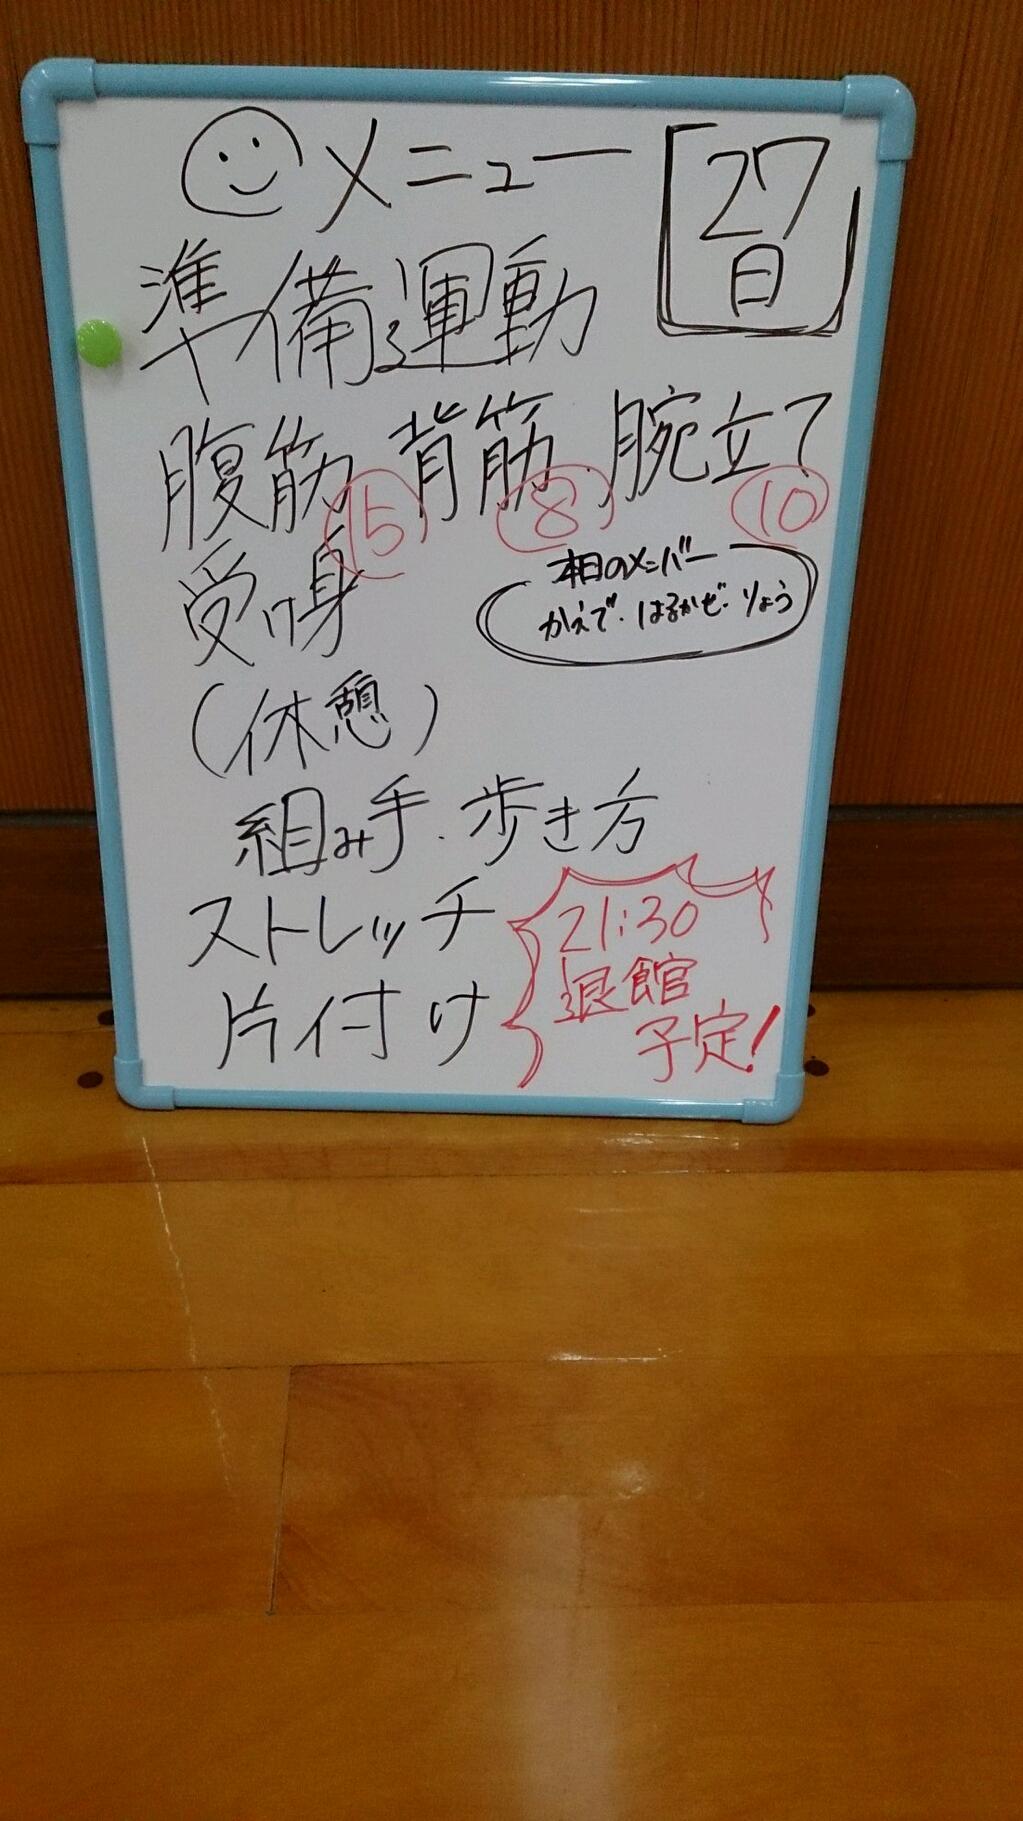 メニュー
27日
準備運動
腹筋 背筋 腕立て
15 8 10
受け身
本日のメンバー
かえで・はるかぜ・りょう
(休憩)
組み手・歩き方
ストレッチ
片付け
21:30
退館
予定!